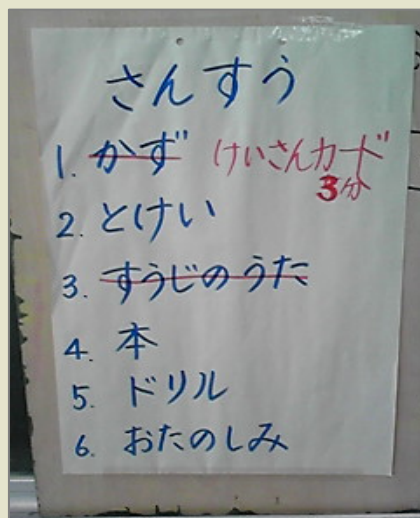 さんすう
1. かず けいさんカード
3分
2. とけい
3. すうじのうた
4. 本
5. ドリル
6. おたのしみ